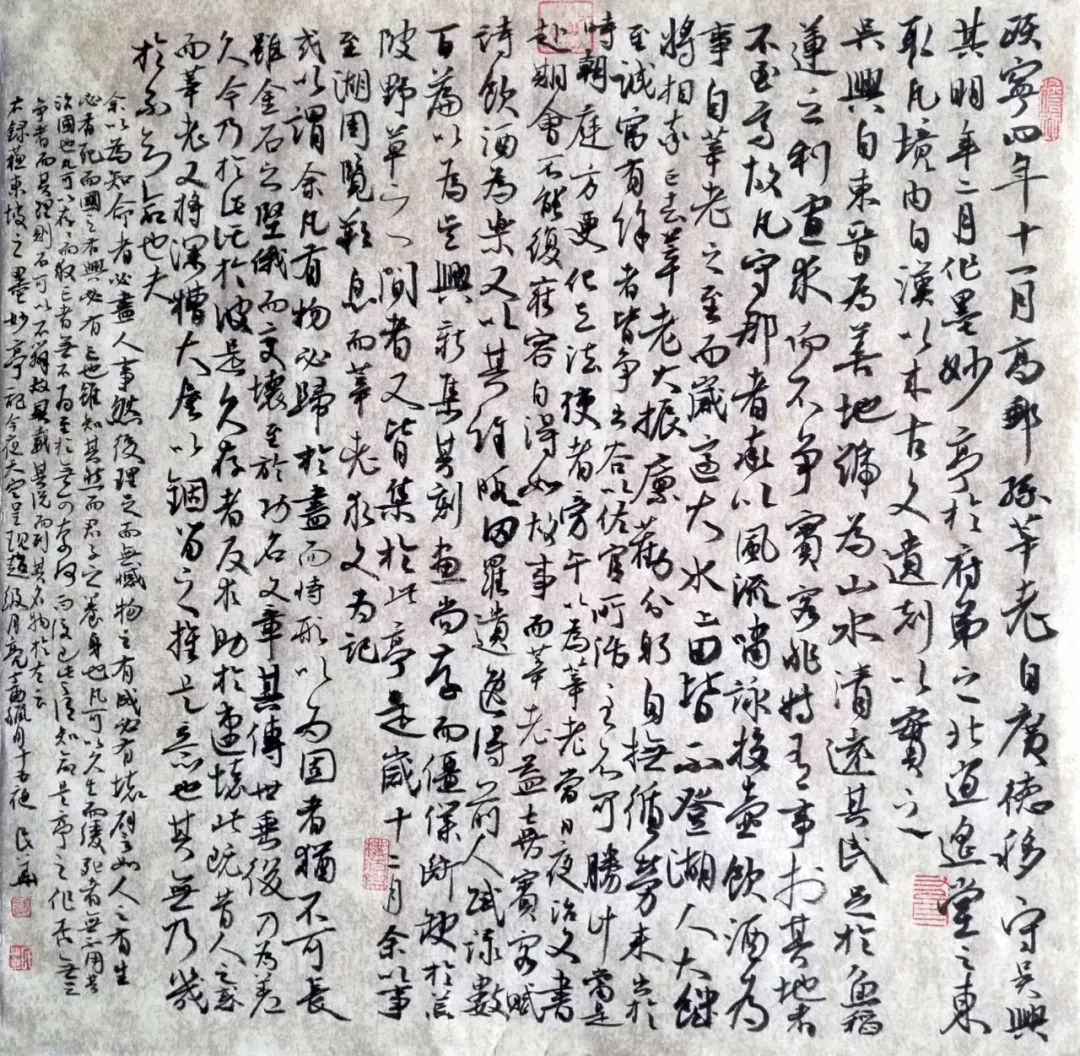 熙寧四年十一月高郵孫莘老自廣德移守吳興
其明年二月作墨妙亭於府第之北逍遙堂之東
取凡境內自漢以來古文遺刻以實之
吳興自東晉為善地號為山水清遠其民足於魚稻
蓮之利寡求而不爭賓客非特有事於其地者
不至焉故凡守郡者率以風流嘯詠投壺飲酒為
事自莘老之至而歲適大水上田皆不登湖人大饑
將相率亡去莘老大振廩勸分躬自撫循勞來出於
至誠富有餘者皆爭出谷以佐官所活至不可勝計當是
時朝庭方更化立法使者旁午以為莘老當日夜治文書
赴期會不能復雍容自得如故事而莘老益喜賓客賦
詩飲酒為樂又以其餘暇網羅遺逸得前人賦詠數
百篇以為吳興新集其刻畫尚存而僵僕斷缺於荒
陂野草之間者又皆集於此亭是歲十二月余以事
至湖周覽歎息而莘老求文為記
或以謂余凡有物必歸於盡而恃形以為固者猶不可長
雖金石之堅俄而變壞至於功名文章其傳世垂後乃為差
久今乃於此託於彼是久存者反求助於速壞此既昔人之惑
而莘老又將深檐大屋以錮留之推是意也其無乃幾
於不知命也夫
余以為知命者必盡人事然後理足而無憾物之有成必有壞譬如人之有生
必有死而國之有興必有亡也雖知其然而君子之養身也凡可以久生而緩死者無不用其
治國也凡可以存存而救亡者無不為至於不可奈何而後已此之謂知命是亭之作否無足
爭者而其理則不可以不辨故具載其說而列其名物於左云
右錄蘇東坡之墨妙亭記今夜天空呈現超級月亮 月十五夜 民